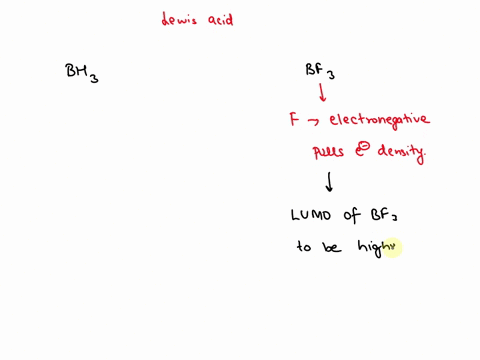 Lewis acid
BH3
BF3
F → electronegative
pulls e⊖ density.
LUMO of BF3
to be high